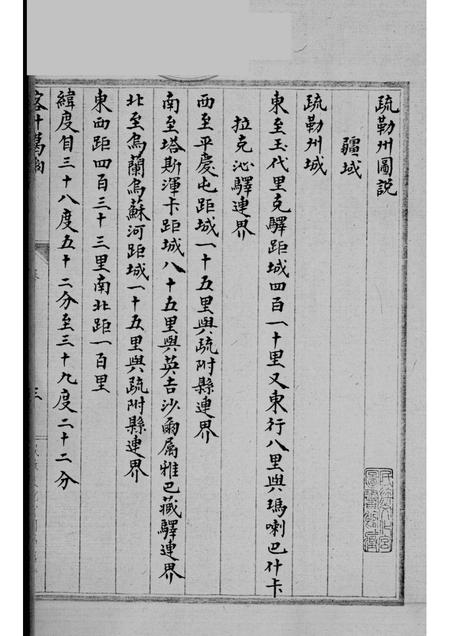 疏勒州圖說
疆域
疏勒州城
東至玉代里克驛距城四百一十里又東行八里與瑪喇巴什卡
拉克沁驛連界
西至平慶屯距城一十五里與疏附縣連界
南至塔斯渾卡距城八十五里與英吉沙爾属雅巴藏驛連界
北至烏蘭烏蘇河距城一十五里與疏附縣連界
東西距四百三十三里南北距一百里
緯度自三十八度五十二分至三十九度二十二分